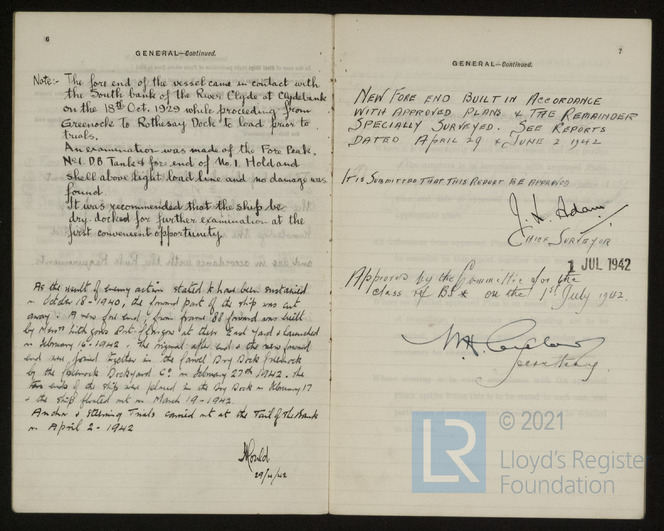 6
GENERAL—Continued.
Note:- The fore end of the vessel came in contact with
the South bank of the River Clyde at Clydebank
on the 18th Oct. 1929 while proceeding from
Greenock to Rothesay Dock to load prior to
trials.
An examination was made of the Fore Peak,
No 1. DB Tank & for end of No. 1. Hold and
shell above light load line and no damage was
found
It was recommended that the ship be
dry-docked for further examination at the
first convenient opportunity
As the result of enemy action stated to have been sustained
in October 18 - 1940, the forward part of the ship was cut
away. A new fore end from frame 88 forward was built
by Messrs Lithgows at their East Yard & launched
in February 16 - 1942. The original after end & the new forward
end were joined together in the Dry Dock Greenock
by the Greenock Dockyard Co in February 27th 1942. The
two ends of the ship were placed in the Dry Dock in February 17
& the ship floated out in March 19 - 1942.
Anchor & Steering Trials carried out at the Tail of the Bank
in April 2 - 1942
29/4/42
7
GENERAL—Continued.
NEW FORE END BUILT IN ACCORDANCE
WITH APPROVED PLANS & THE REMAINDER
SPECIALLY SURVEYED. SEE REPORTS
DATED APRIL 29 & JUNE 2 1942
IT IS SUBMITTED THAT THIS REPORT BE APPROVED
J. L. Adam
CHIEF SURVEYOR
1 JUL 1942
Approved by the Committee for the
class of BS* on the 1st July 1942.
Secretary
LR
© 2021
Lloyd's Register
Foundation